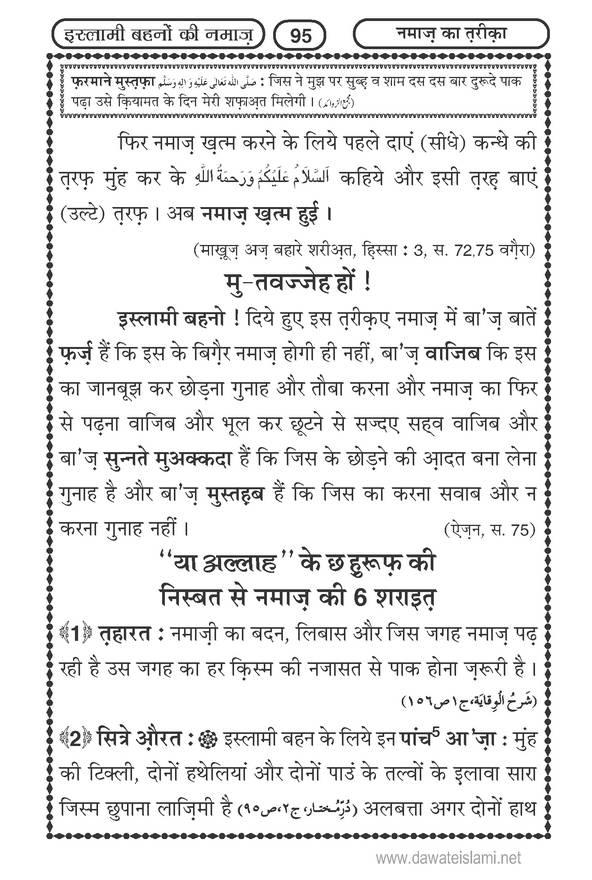 इस्लामी बहनों की नमाज़ 95 नमाज़ का त़रीक़ा
फ़रमाने मुस्त़फ़ा صَلَّى اللهُ تَعَالٰى عَلَيْهِ وَاٰلِهٖ وَسَلَّم : जिस ने मुझ पर सुब्ह़ व शाम दस दस बार दुरूदे पाक
पढ़ा उसे क़ियामत के दिन मेरी शफ़ाअ़त मिलेगी । (مجمع الزوائد)
फिर नमाज़ ख़त्म करने के लिये पहले दाएं (सीधे) कन्धे की
त़रफ़ मुंह कर के اَلسَّلَامُ عَلَيْكُمْ وَرَحمَةُ اللّٰهِ कहिये और इसी त़रह़ बाएं
(उल्टे) त़रफ़ । अब नमाज़ ख़त्म हुई ।
(माख़ूज़ अज़ बहारे शरीअ़त, ह़िस्सा : 3, स. 72,75 वग़ैरा)
मु-तवज्जेह हों !
इस्लामी बहनो ! दिये हुए इस त़रीक़ए नमाज़ में बा'ज़ बातें
फ़र्ज़ हैं कि इस के बिग़ैर नमाज़ होगी ही नहीं, बा'ज़ वाजिब कि इस
का जानबूझ कर छोड़ना गुनाह और तौबा करना और नमाज़ का फिर
से पढ़ना वाजिब और भूल कर छूटने से सज्दए सह्व वाजिब और
बा'ज़ सुन्नते मुअक्कदा हैं कि जिस के छोड़ने की आ़दत बना लेना
गुनाह है और बा'ज़ मुस्तह़ब हैं कि जिस का करना सवाब और न
करना गुनाह नहीं । (ऐज़न, स. 75)
“या अल्लाह” के छ हुरूफ़ की
निस्बत से नमाज़ की 6 शराइत़
﴾1﴿ त़हारत : नमाज़ी का बदन, लिबास और जिस जगह नमाज़ पढ़
रही है उस जगह का हर क़िस्म की नजासत से पाक होना ज़रूरी है ।
(شَرحُ الْوِقايَة،ج١ص١٥٦)
﴾2﴿ सित्रे औ़रत : ۞ इस्लामी बहन के लिये इन पांच5 आ'ज़ा : मुंह
की टिक्ली, दोनों हथेलियां और दोनों पाउं के तल्वों के इ़लावा सारा
जिस्म छुपाना लाज़िमी है (دُرِّمُختار،ج٢،ص٩٥) अलबत्ता अगर दोनों हाथ
www.dawateislami.net